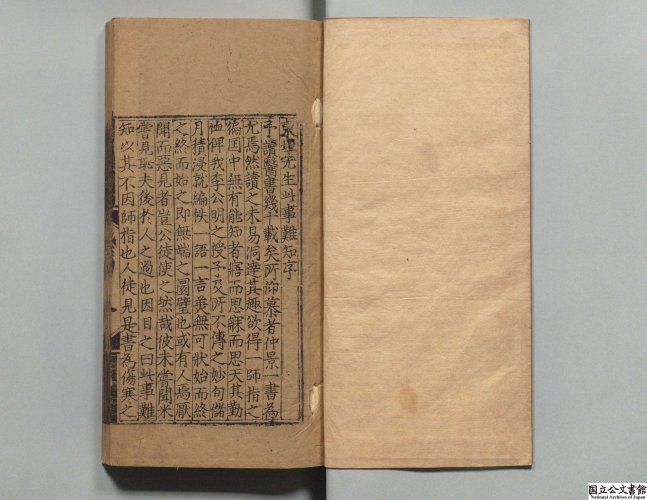 東垣先生此事難知序
予讀醫書幾十載矣所仰慕者仲景一書為
尤焉然讀之未易洞達其趣欲得一師指之
徧国中無有能知者寤而思寐而思天其勤
恤俾我李公明之授予及所不傳之妙旬儲
月積浸就編帙一語一言美無可狀始而終
之終而始之即無端之圜璧也或有人焉厭
聞而惡見者豈公徒使之然哉彼未嘗聞未
嘗見耻夫後於人之過也因目之曰此事難
知以其不因師指也人徒見是書為傷寒之
国立公文書館
National Archives of Japan